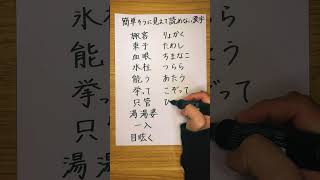 簡単そうに見えて読めない漢字
旅客 りょかく
ためし
血眼 ちまなこ
氷柱 つらら
能う あたう
挙って こぞって
只管 ひ
湯湯婆
一入
目眩く